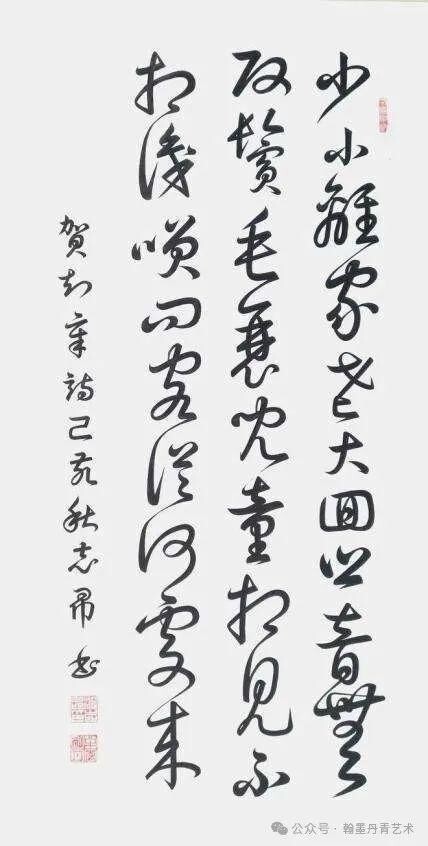 少小離家老大回鄉音無
改鬢毛衰兒童相見不
相識笑問客從何處來
賀知章詩己亥秋志書
公众号·翰墨丹青艺术